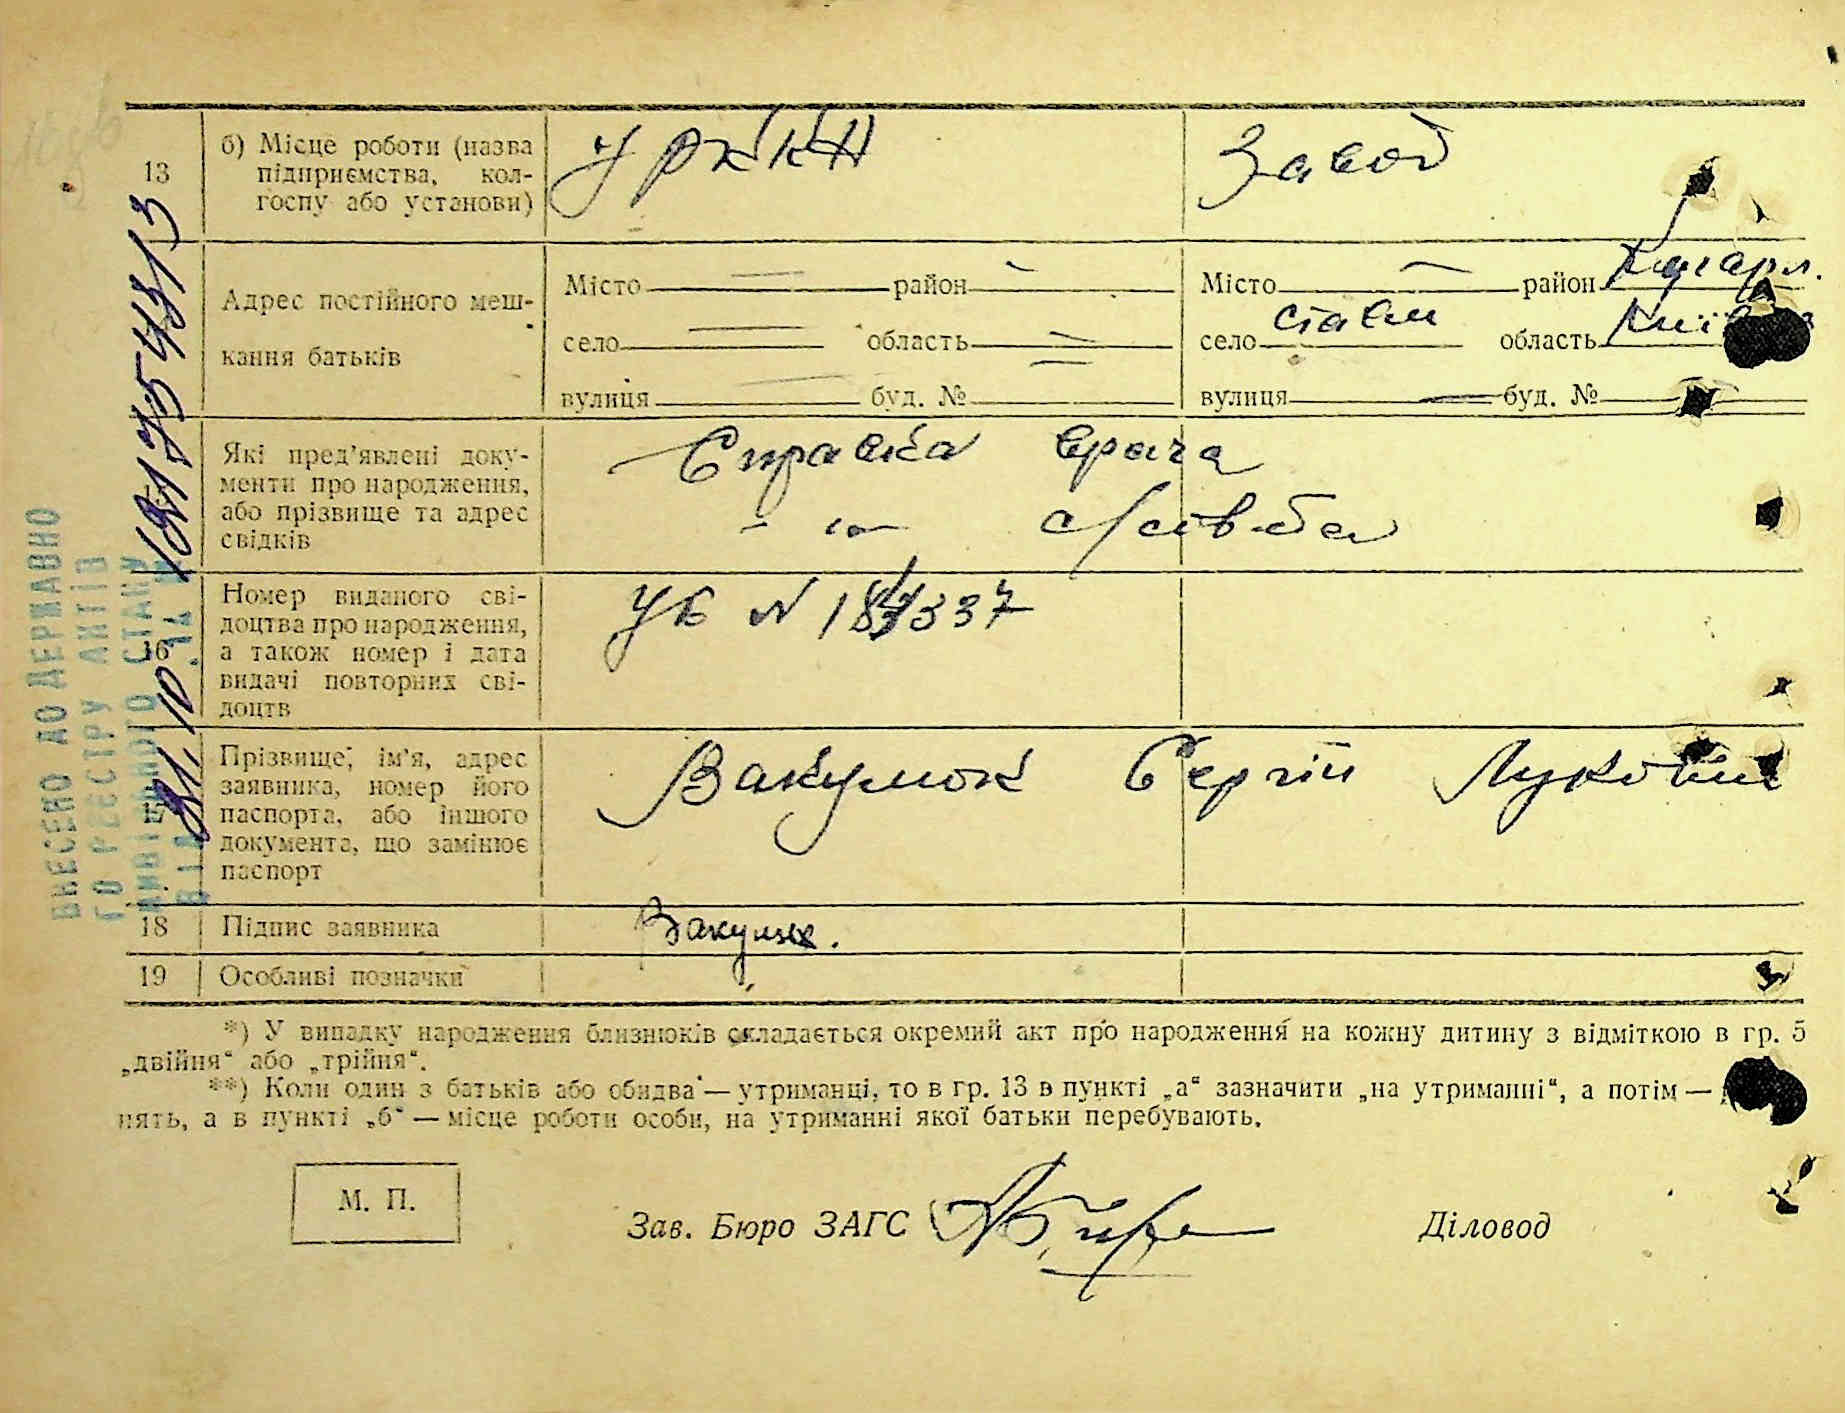 13
б) Місце роботи (назва
підприємства, кол-
госпу або установи)
У РККА
Завод
Адрес постійного меш-
кання батьків
Місто район
село область
вулиця буд. №
Місто район Кагарл.
село Стави область
вулиця буд. №
Які пред'явлені доку-
менти про народження,
або прізвище та адрес
свідків
Справка врача
16
Номер виданого сві-
доцтва про народження,
а також номер і дата
видачі повторних сві-
доцтв
УБ N
Прізвище, ім'я, адрес
заявника, номер його
паспорта, або іншого
документа, що замінює
паспорт
Сергій
18
Підпис заявника
19
Особливі позначки
*) У випадку народження близнюків складається окремий акт про народження на кожну дитину з відміткою в гр. 5
„двійня“ або „трійня“.
**) Коли один з батьків або обидва — утриманці, то в гр. 13 в пункті „а“ зазначити „на утриманні“, а потім —
нять, а в пункті „б“ — місце роботи особи, на утриманні якої батьки перебувають.
М. П.
Зав. Бюро ЗАГС
Діловод
ВНЕСЕНО ДО ДЕРЖАВНО
ГО РЕЄСТРУ АКТІВ
ЦИВІЛЬНОГО СТАНУ